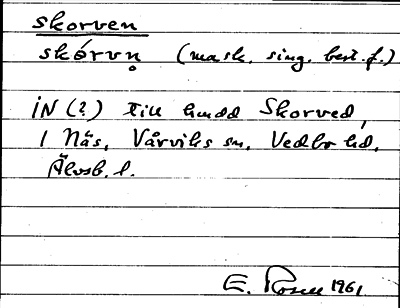 skorven
skórvn̥ (mask. sing. best. f.)
IN (?) till hmdd Skorved,
1 Näs, Vårviks sn, Vedbo hd,
Älvsb. l.
E. Rosell 1961